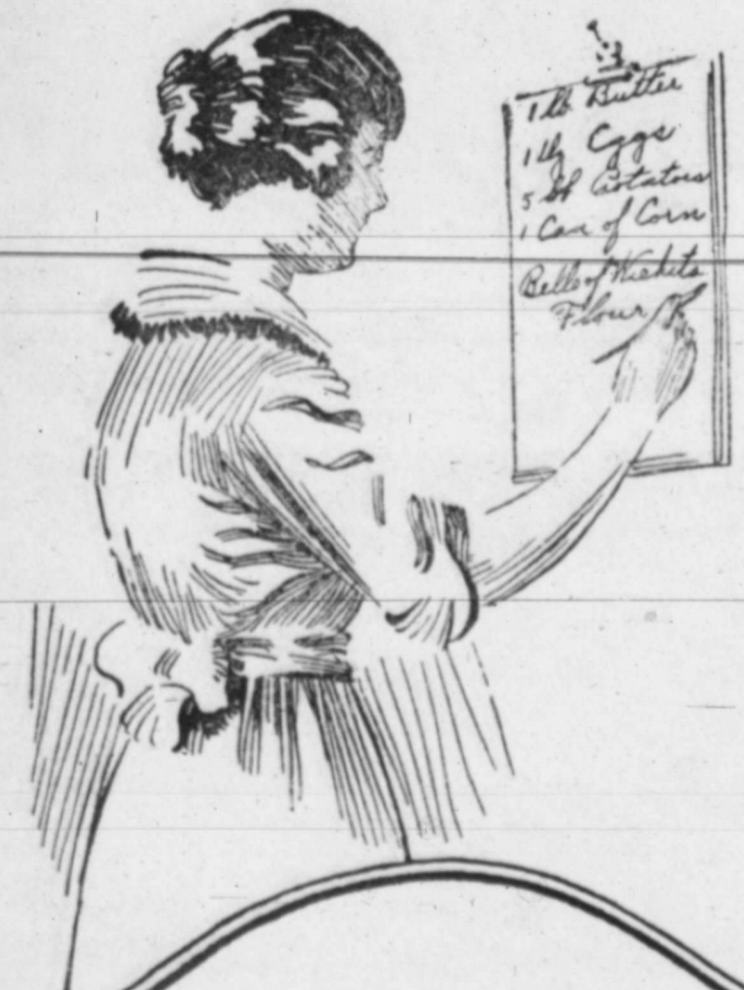 1 lb Butter
1 Eggs
5 lb Potatoes
1 Can of Corn
Belle of Wichita
Flour